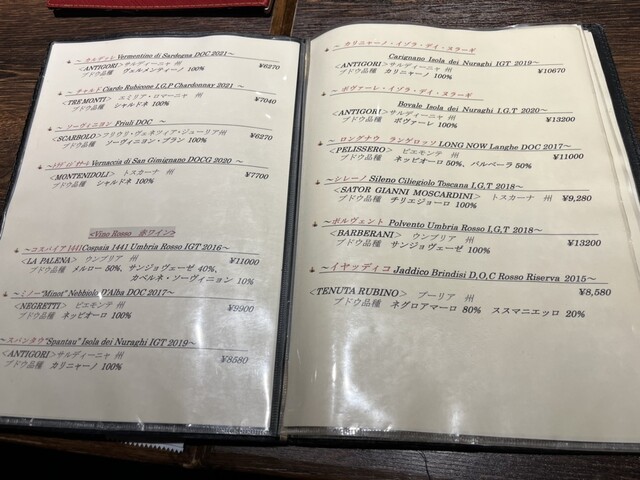 ～ カルデッレ Vermentino di Sardegna DOC 2021～
<ANTIGORI>サルディーニャ 州 ¥6270
ブドウ品種 ヴェルメンティーノ 100%
～ チャルド Ciardo Rubicone I,G,P Chardonnay 2021 ～
<TRE MONTI> エミリア・ロマーニャ 州 ¥7040
ブドウ品種 シャルドネ 100%
～ ソーヴィニヨン Friuli DOC ～
<SCARBOLO>フリウリ・ヴェネツィア・ジューリア州 ¥6270
ブドウ品種 ソーヴィニヨン・ブラン 100%
Vernaccia di San Gimignano DOCG 2020 ～
<MONTENIDOLI> トスカーナ 州 ¥7700
ブドウ品種 シャルドネ 100%
<Vino Rosso 赤ワイン>
～コスパイア1441 Cospaia 1441 Umbria Rosso IGT 2016～
<LA PALENA> ウンブリア 州 ¥11000
ブドウ品種 メルロー 50%、サンジョヴェーゼ 40%、
カベルネ・ソーヴィニョン 10%
～ミノー"Minot" Nebbiolo D'Alba DOC 2017～
<NEGRETTI> ピエモンテ 州 ¥9900
ブドウ品種 ネッビオーロ 100%
～スパンタウ "Spantau" Isola dei Nuraghi IGT 2019～
<ANTIGORI>サルディーニャ 州 ¥8580
ブドウ品種 カリニャーノ 100%
～ カリニャーノ・イゾラ・デイ・ヌラーギ
Carignano Isola dei Nuraghi IGT 2019～
<ANTIGORI>サルディーニャ 州 ¥10670
ブドウ品種 カリニャーノ 100%
～ ボヴァーレ・イゾラ・デイ・ヌラーギ
Bovale Isola dei Nuraghi I.G.T 2020～
<ANTIGORI>サルディーニャ 州 ¥13200
ブドウ品種 ボヴァーレ 100%
～ ロングナウ ランゲロッソ LONG NOW Langhe DOC 2017～
<PELISSERO> ピエモンテ 州 ¥11000
ブドウ品種 ネッビオーロ 50%、バルベーラ 50%
～シレーノ Sileno Ciliegiolo Toscana I,G,T 2018～
<SATOR GIANNI MOSCARDINI> トスカーナ 州 ¥9,280
ブドウ品種 チリエジョーロ 100%
～ ポルヴェント Polvento Umbria Rosso I,G,T 2018～
<BARBERANI> ウンブリア 州 ¥13200
ブドウ品種 サンジョヴェーゼ 100%
～イヤッディコ Jaddico Brindisi D,O,C Rosso Riserva 2015～
<TENUTA RUBINO> プーリア 州 ¥8,580
ブドウ品種 ネグロアマーロ 80% ススマニエッロ 20%